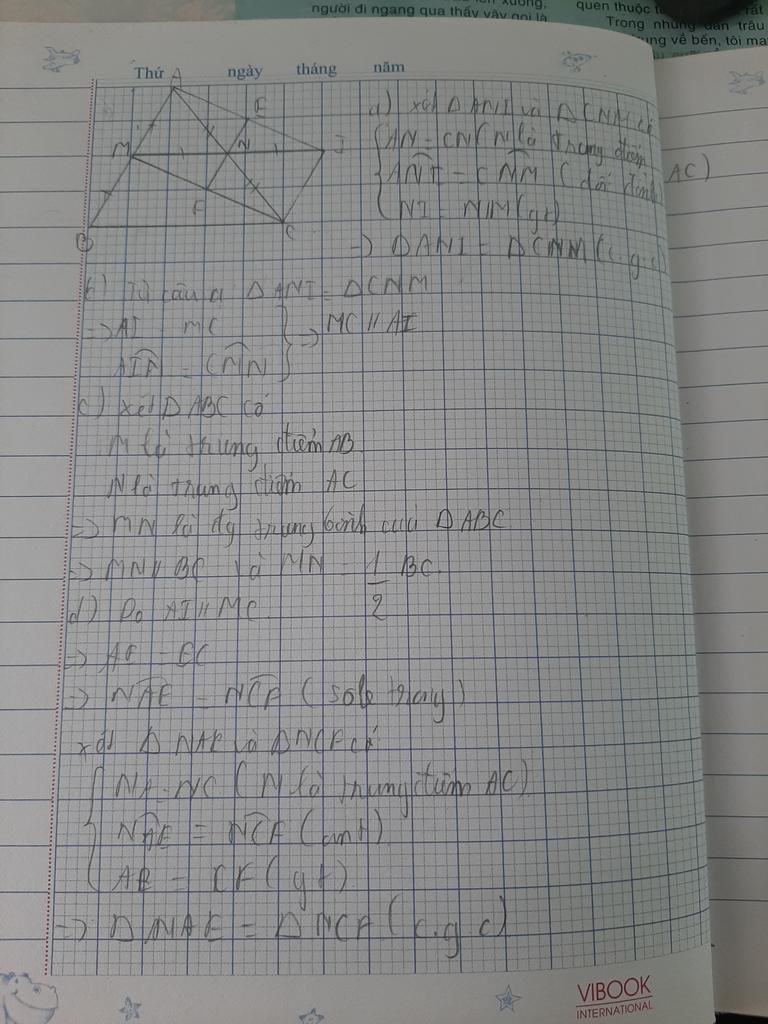 người đi ngang qua thấy vậy gọi là
quen thuộc
Trong những đàn trâu
ung về bến, tôi
Thứ ngày tháng năm
A
E
M N I
F
B C
a) xét Δ ANI và Δ CNM có
AN = CN (N là trung điểm AC)
ANI = CNM (đối đỉnh)
NI = NM (gt)
=> Δ ANI = Δ CNM (c.g.c)
b) Từ câu a Δ ANI = Δ CNM
=> AI = MC
=> MC // AI
= CMN
c) xét Δ ABC có
M là trung điểm AB
N là trung điểm AC
=> MN là đg trung bình của Δ ABC
=> MN // BC và MN = 1/2 BC.
d) Do AI // MC
=> NAE = NCF (sole trong)
xét Δ NAE và Δ NCF có
NA = NC (N là trung điểm AC)
NAE = NCF (cmt)
AE = CF (gt)
=> Δ NAE = Δ NCF (c.g.c)
VIBOOK
INTERNATIONAL